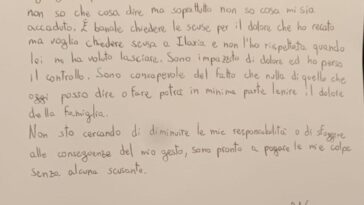 non so che cosa dire ma soprattutto non so cosa mi sia
accaduto. È banale chiedere le scuse per il dolore che ho recato
ma voglio chiedere scusa a Ilaria e non l'ho rispettata quando
lei mi ha voluto lasciare. Sono impazzito di dolore ed ho perso
il controllo. Sono consapevole del fatto che nulla di quello che
oggi posso dire o fare potrà in minima parte lenire il dolore
della famiglia.
Non sto cercando di diminuire le mie responsabilità o di sfuggire
alle conseguenze del mio gesto, sono pronto a pagare le mie colpe
senza alcuna scusante.